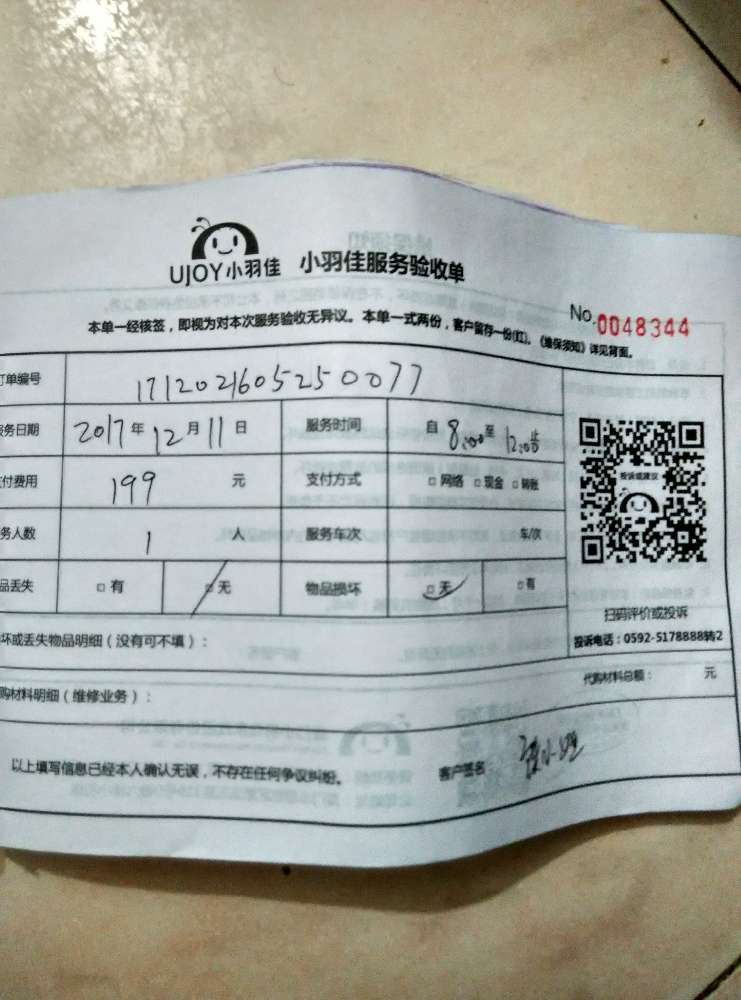 UJOY小羽佳 小羽佳服务验收单
No.0048344
本单一经核签，即视为对本次服务验收无异议。本单一式两份，客户留存一份(红)。《维保须知》详见背面。
订单编号 171202160525250077
务日期 2017年12月11日 服务时间 自8:00至12:00
付费用 199 元 支付方式 □网络 □现金 □转账
务人数 1 人 服务车次 车/次
品丢失 □有 □无 物品损坏 □无 □有
投诉或建议
扫码评价或投诉
投诉电话：0592-5178888转2
坏或丢失物品明细（没有可不填）：
购材料明细（维修业务）： 代购材料总额： 元
以上填写信息已经本人确认无误，不存在任何争议纠纷。 客户签名